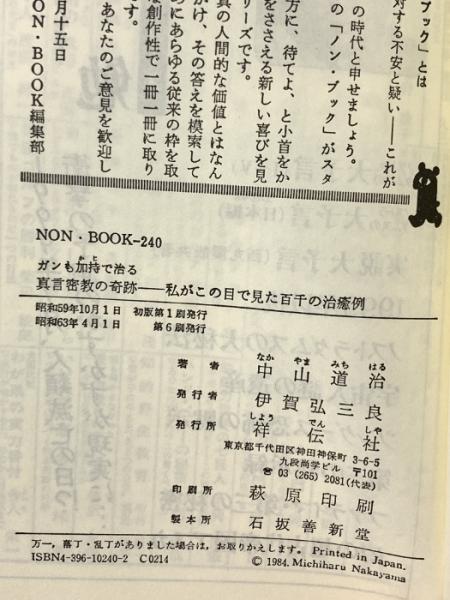 ブック」とは
対する不安と疑い——これが
の時代と申せましょう。
の「ノン・ブック」がスタ
方に、待てよ、と小首をか
をささえる新しい喜びを見
リーズです。
真の人間的な価値とはなん
かけ、その答えを模索して
めにあらゆる従来の枠を取
は創作性で一冊一冊に取り
す。
あなたのご意見を歓迎し
月十五日
NON・BOOK編集部
NON・BOOK-240
ガンも加持で治る
真言密教の奇跡——私がこの目で見た百千の治癒例
昭和59年10月1日 初版第1刷発行
昭和63年4月1日 第6刷発行
著者 中山道治
発行者 伊賀弘三良
発行所 祥伝社
東京都千代田区神田神保町3-6-5
九段尚学ビル 〒101
☎03(265)2081(代表)
印刷所 萩原印刷
製本所 石坂善新堂
万一、落丁・乱丁がありました場合は、お取りかえします。 Printed in Japan.
ISBN4-396-10240-2 C0214 © 1984, Michiharu Nakayama